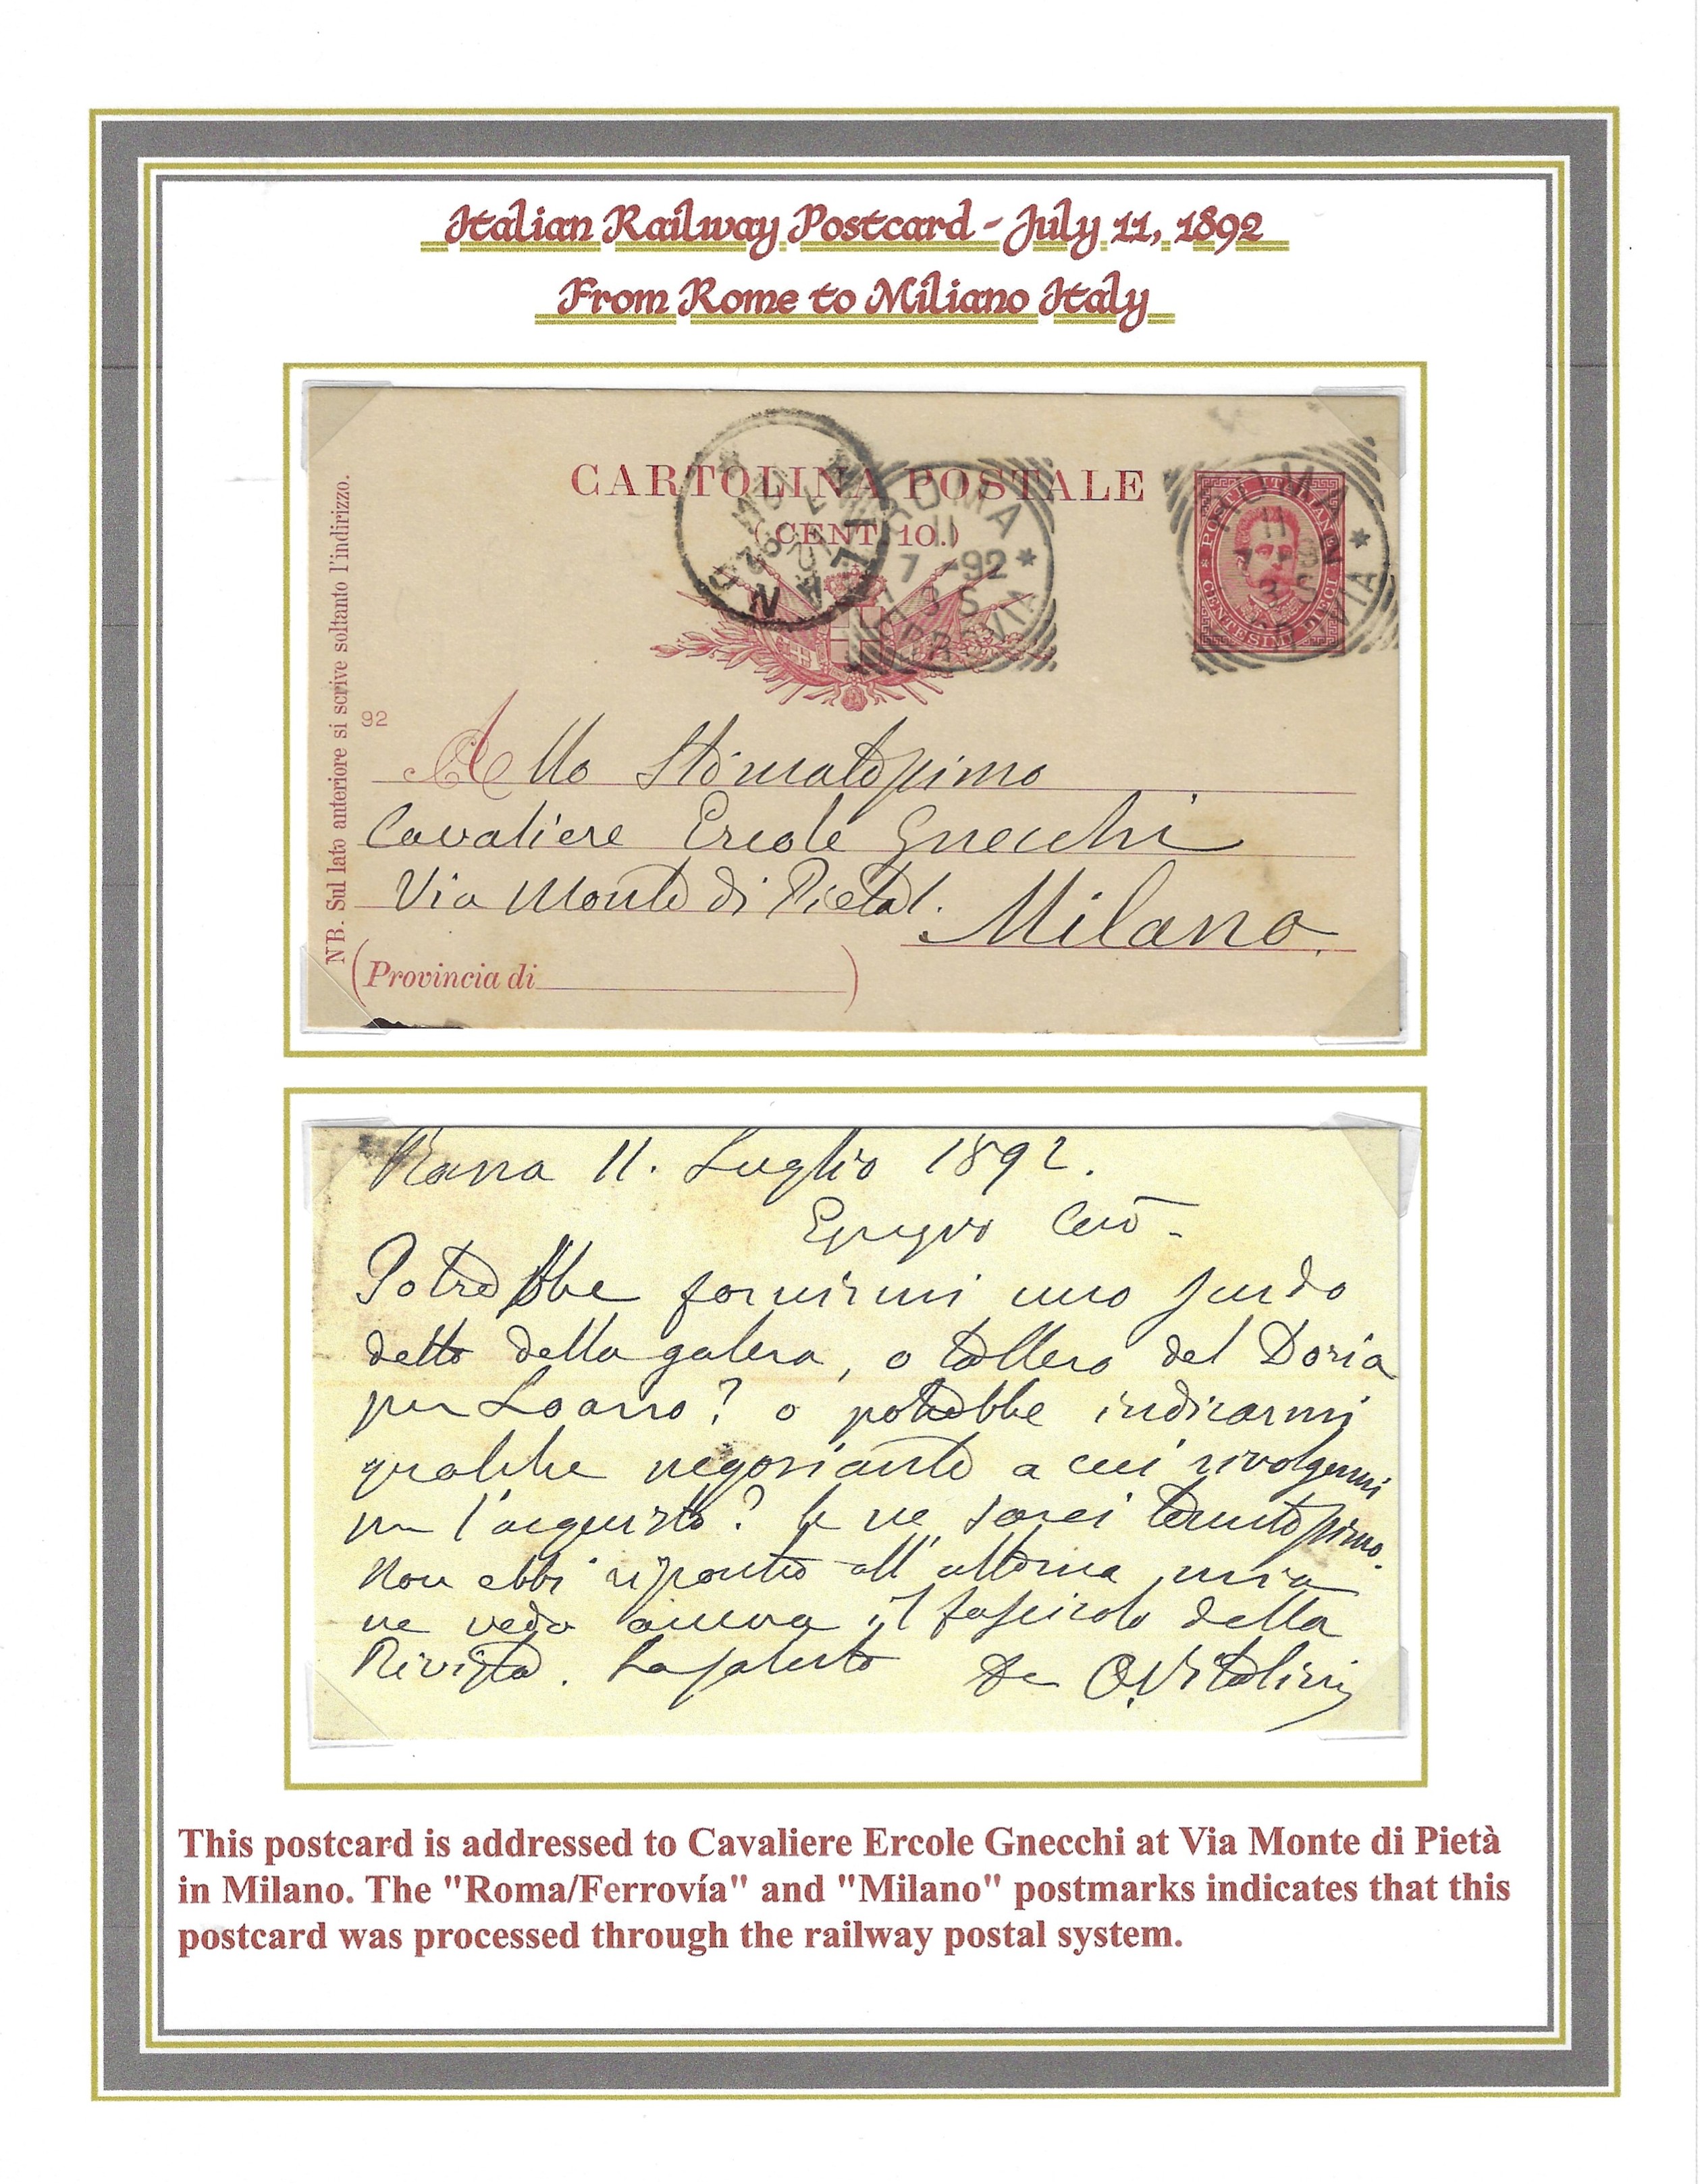 Italian Railway Postcard - July 11, 1892
From Rome to Miliano Italy
CARTOLINA POSTALE
(CENT. 10.)
ROMA
11
7 - 92
3 S
FERROVIA
MILANO
ROMA
11
FERROVIA
POSTE ITALIANE
CENTESIMI DIECI
NB. Sul lato anteriore si scrive soltanto l'indirizzo.
92
Allo Stimatissimo
Cavaliere Ercole Gnecchi
Via Monte di Pietà 1.
Milano.
(Provincia di )
Roma 11. Luglio 1892.
Egregio Cav.
Potrebbe fornirmi uno scudo
detto della galera, o tallero del Doria
per Loano? o potrebbe indicarmi
qualche negoziante a cui rivolgermi
per l'acquisto? Le ne sarei tenutissimo.
Non ebbi risposta all'ultima mia
ne vedo ancora il fascicolo della
Rivista. La saluto O. Vitalini
This postcard is addressed to Cavaliere Ercole Gnecchi at Via Monte di Pietà
in Milano. The "Roma/Ferrovía" and "Milano" postmarks indicates that this
postcard was processed through the railway postal system.